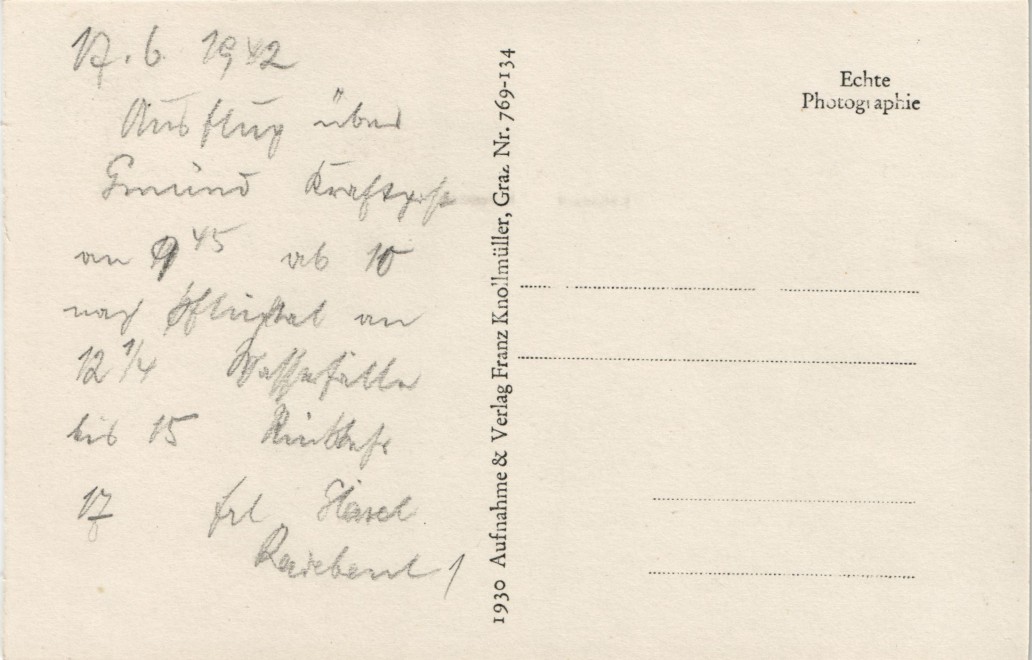 17. 6. 1942
Ausflug über
Gmünd Kraftpost
an 9 45 ab 10
nach an
12 1/4 Wasserfälle
bis 15
17 Frl.
1930 Aufnahme & Verlag Franz Knollmüller, Graz Nr. 769-134
Echte
Photographie